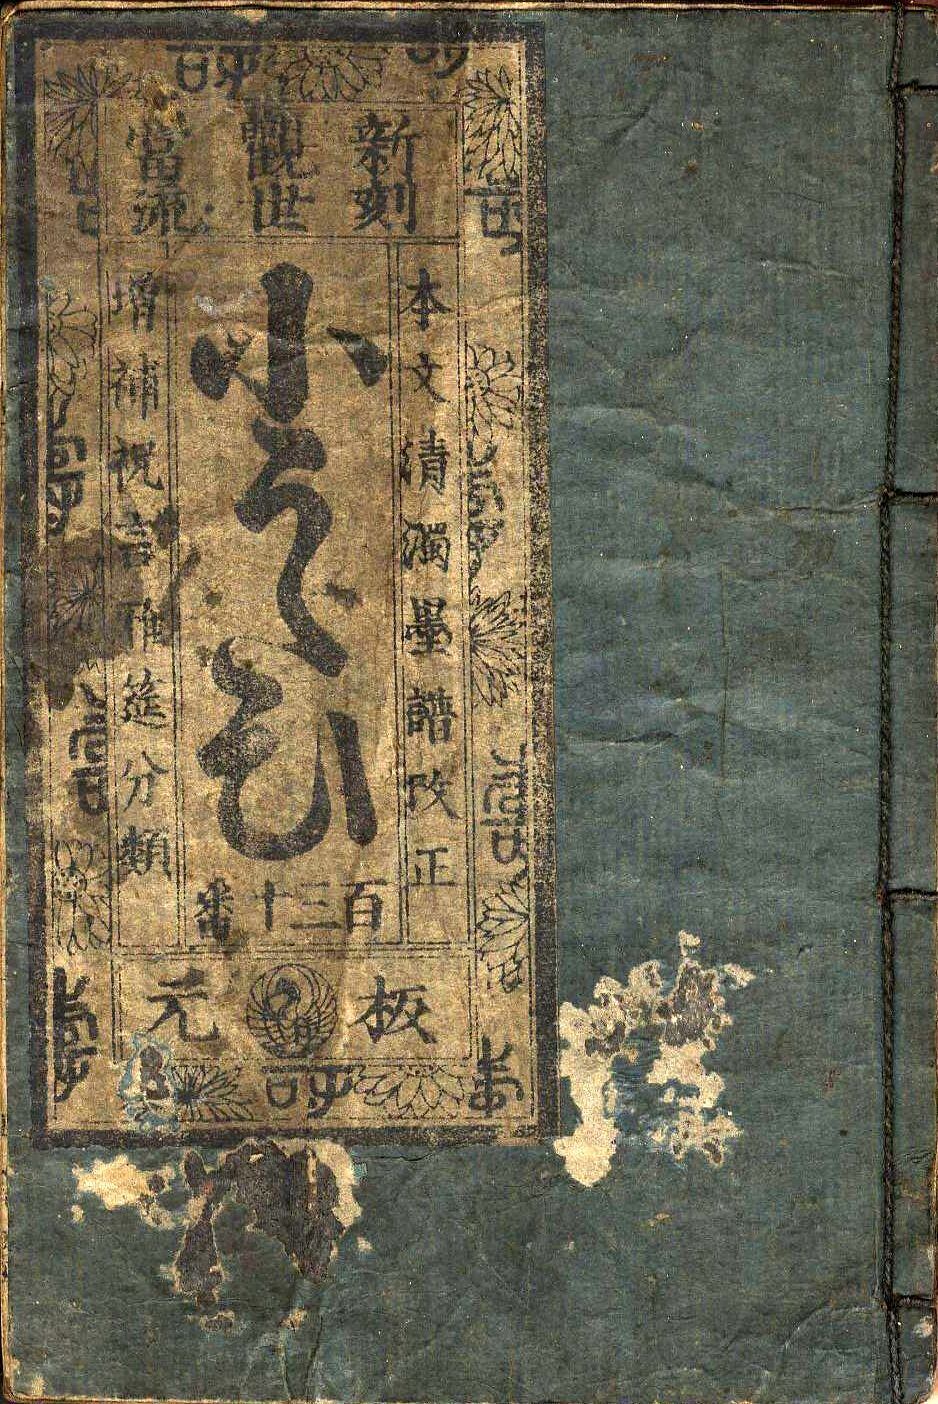 新刻
觀世
當流
本文清濁墨譜改正
小うたひ
百三十番
增補祝言酒筵分類
板元